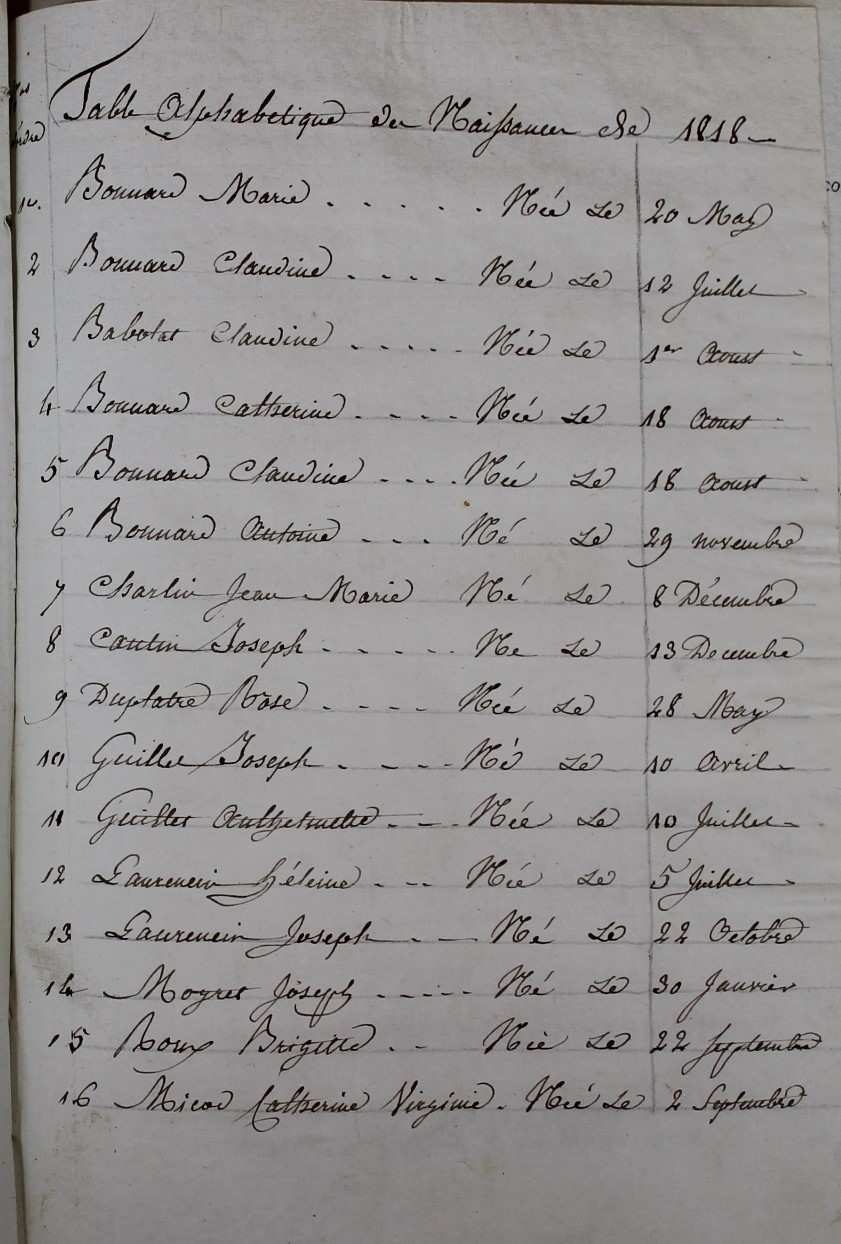 Table Alphabetique des Naissances de 1818
1er. Bonnard Marie . . . . . Née Le 20 May
2 Bonnard Claudine . . . . Née Le 12 Juillet
3 Babolat Claudine . . . . . Née Le 1er Aoust
4 Bonnard Catherine . . . . Née Le 18 Aoust
5 Bonnard Claudine . . . . Née Le 18 Aoust
6 Bonnard Antoine . . . Né Le 29 novembre
7 Charlin Jean Marie Né Le 8 Décembre
8 Cautin Joseph . . . . . Ne Le 13 Decembre
9 Duplatre Rose . . . . Née Le 28 May
10 Guillet Joseph . . . . Né Le 10 Avril
11 Guillet Anthelmette . . . Née Le 10 Juillet
12 Laurencin héleine . . . Née Le 5 Juillet
13 Laurencin Joseph . . Né Le 22 Octobre
14 Moyret Joseph . . . . . Né Le 30 Janvier
15 Roux Brigitte . . Née Le 22 Septembre
16 Micod Catherine Virginie . Née Le 2 Septembre